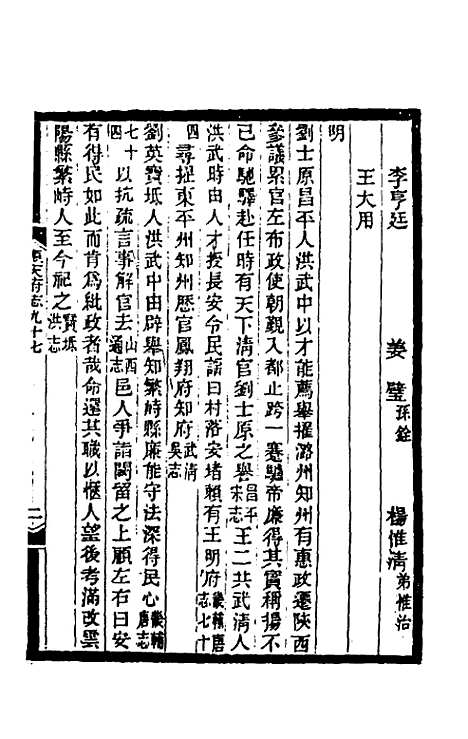 李亨廷　姜璧孫銓　楊惟清弟惟治
王大用
明
劉士原昌平人洪武中以才能薦舉擢潞州知州有惠政遷陝西
參議累官左布政使朝覲入都止跨一蹇驢帝廉得其實稱揚不
已命馳驛赴任時有天下清官劉士原之譽昌平宋志王二共武清人
洪武時由人才授長安令民謠曰村落安堵賴有王明府畿輔唐志七十
四尋擢東平州知州歷官鳳翔府知府武清吳志
劉英寶坻人洪武中由辟舉知繁峙縣廉能守法深得民心畿輔唐志
七十四以抗疏言事解官去山西通志邑人爭詣闕留之上顧左右曰安
有得民如此而肯爲紕政者哉命還其職以愜人望後考滿改雲
陽縣繁峙人至今祀之寶坻洪志
順天府志九十七　二